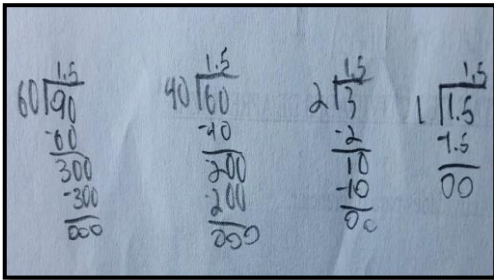 1.5
60 90
-60
300
-300
000
1.5
40 60
-40
200
-200
000
1.5
2 3
-2
10
-10
00
1.5
1 1.5
-1.5
00